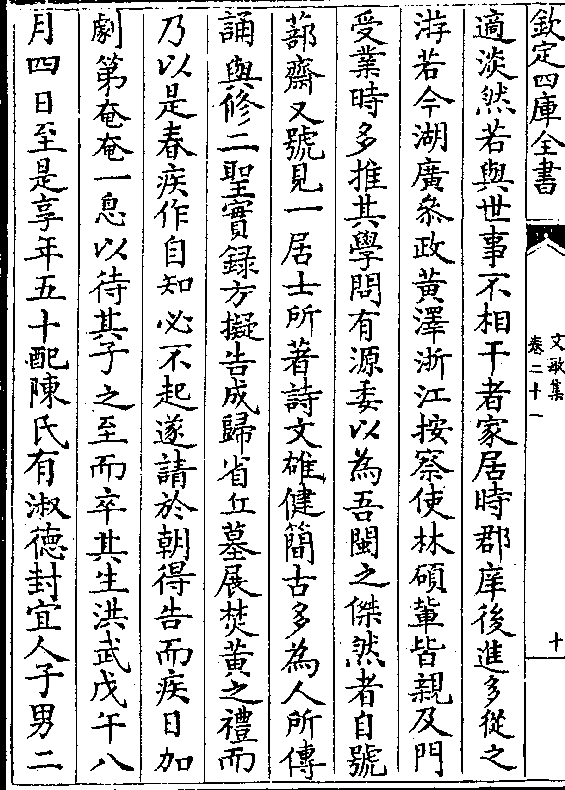 欽定四庫全書
文敏集
卷二十一
十
適淡然若與世事不相干者家居時郡庠後進多從之
游若今湖廣叅政黃澤浙江按察使林碩軰皆親及門
受業時多推其學問有源委以為吾閩之傑然者自號
蔀齋又號見一居士所著詩文雄健簡古多為人所傳
誦與修二聖實録方擬告成歸省丘墓展焚黃之禮而
乃以是春疾作自知必不起遂請於朝得告而疾日加
劇第奄奄一息以待其子之至而卒其生洪武戊午八
月四日至是享年五十配陳氏有淑德封宜人子男二